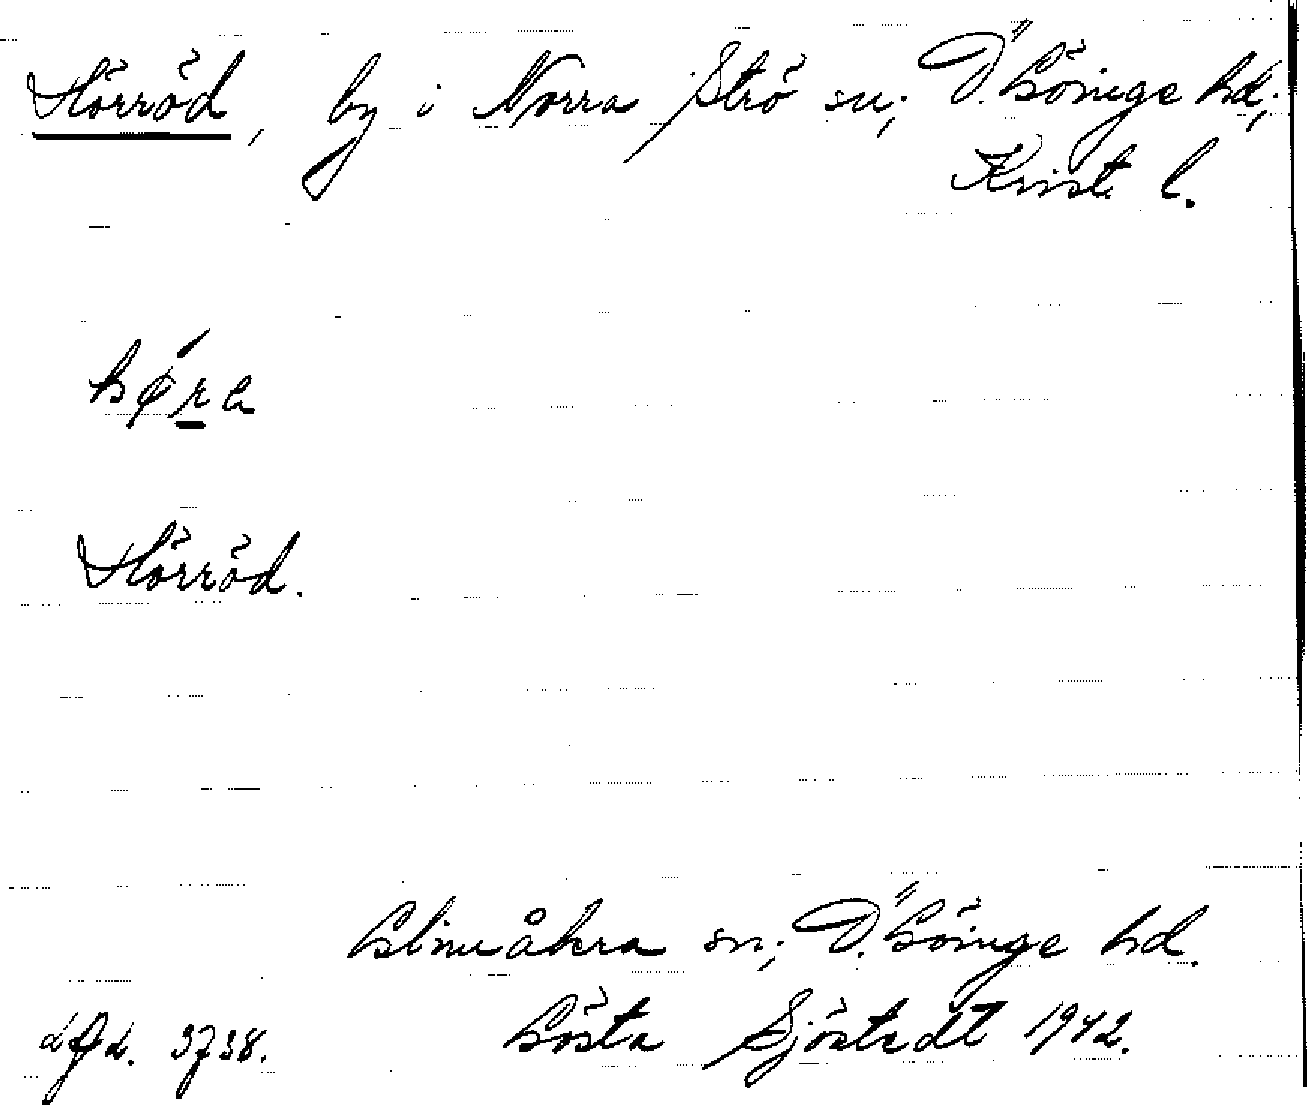 Hörröd, by i Norra Strö sn; Ö. Göinge hd;
Krist. l.
hø̀ra
Hörröd.
Glimåkra sn; Ö. Göinge hd.
Gösta Sjöstedt 1942.
3738.